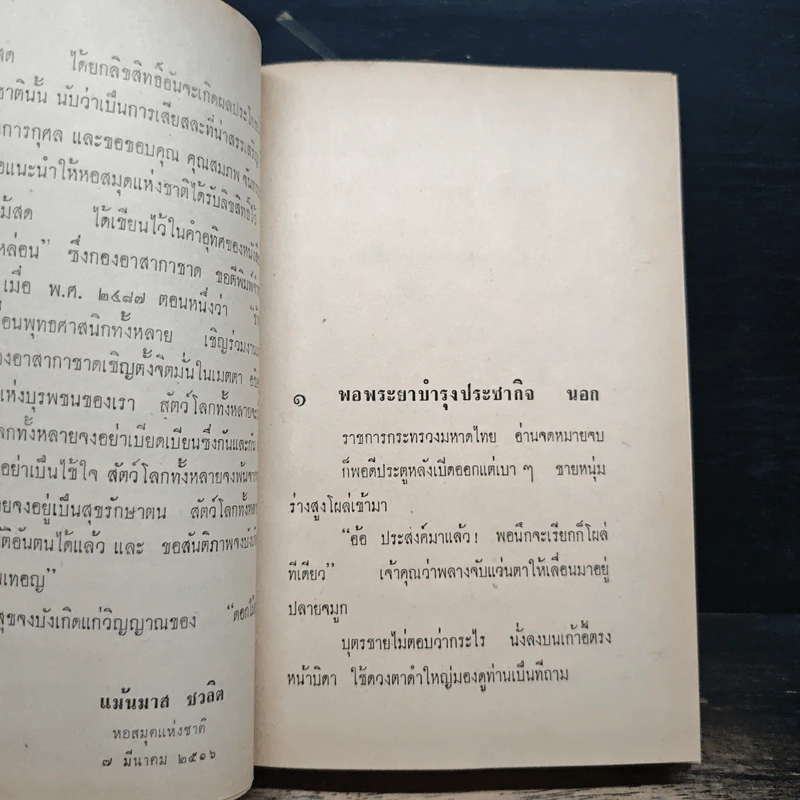 สด ได้ยกลิขสิทธิ์อันจะเกิดผลประโยชน์
ชาตินั้น นับว่าเป็นการเสียสละที่น่าสรรเสริญ
การกุศล และขอขอบคุณ คุณสมภพ
แนะนำให้หอสมุดแห่งชาติได้รับลิขสิทธิ์
ม้สด ได้เขียนไว้ในคำอุทิศของหนังสือ
หล่อน” ซึ่งกองอาสากาชาด ขอตีพิมพ์
เมื่อ พ.ศ. ๒๔๘๗ ตอนหนึ่งว่า
อนพุทธศาสนิกทั้งหลาย เชิญร่วมงาน
งอาสากาชาดเชิญตั้งจิตมั่นในเมตตา
แห่งบุรพชนของเรา สัตว์โลกทั้งหลาย
ลกทั้งหลายจงอย่าเบียดเบียนซึ่งกันและกัน
อย่าเป็นไข้ใจ สัตว์โลกทั้งหลายจงพ้นจาก
ยจงอยู่เป็นสุขรักษาตน สัตว์โลกทั้งหลาย
ติอันตนได้แล้ว และ ขอสันติภาพจง
นเทอญ”
สุขจงบังเกิดแก่วิญญาณของ “ดอกไม้
แม้นมาส ชวลิต
หอสมุดแห่งชาติ
๗ มีนาคม ๒๕๑๖
๑ พอพระยาบำรุงประชากิจ นอก
ราชการกระทรวงมหาดไทย อ่านจดหมายจบ
ก็พอดีประตูหลังเปิดออกแต่เบา ๆ ชายหนุ่ม
ร่างสูงโผล่เข้ามา
“อ้อ ประสงค์มาแล้ว! พอนึกจะเรียกก็โผล่
ทีเดียว” เจ้าคุณว่าพลางจับแว่นตาให้เลื่อนมาอยู่
ปลายจมูก
บุตรชายไม่ตอบว่ากระไร นั่งลงบนเก้าอี้ตรง
หน้าบิดา ใช้ดวงตาดำใหญ่มองดูท่านเป็นทีถาม